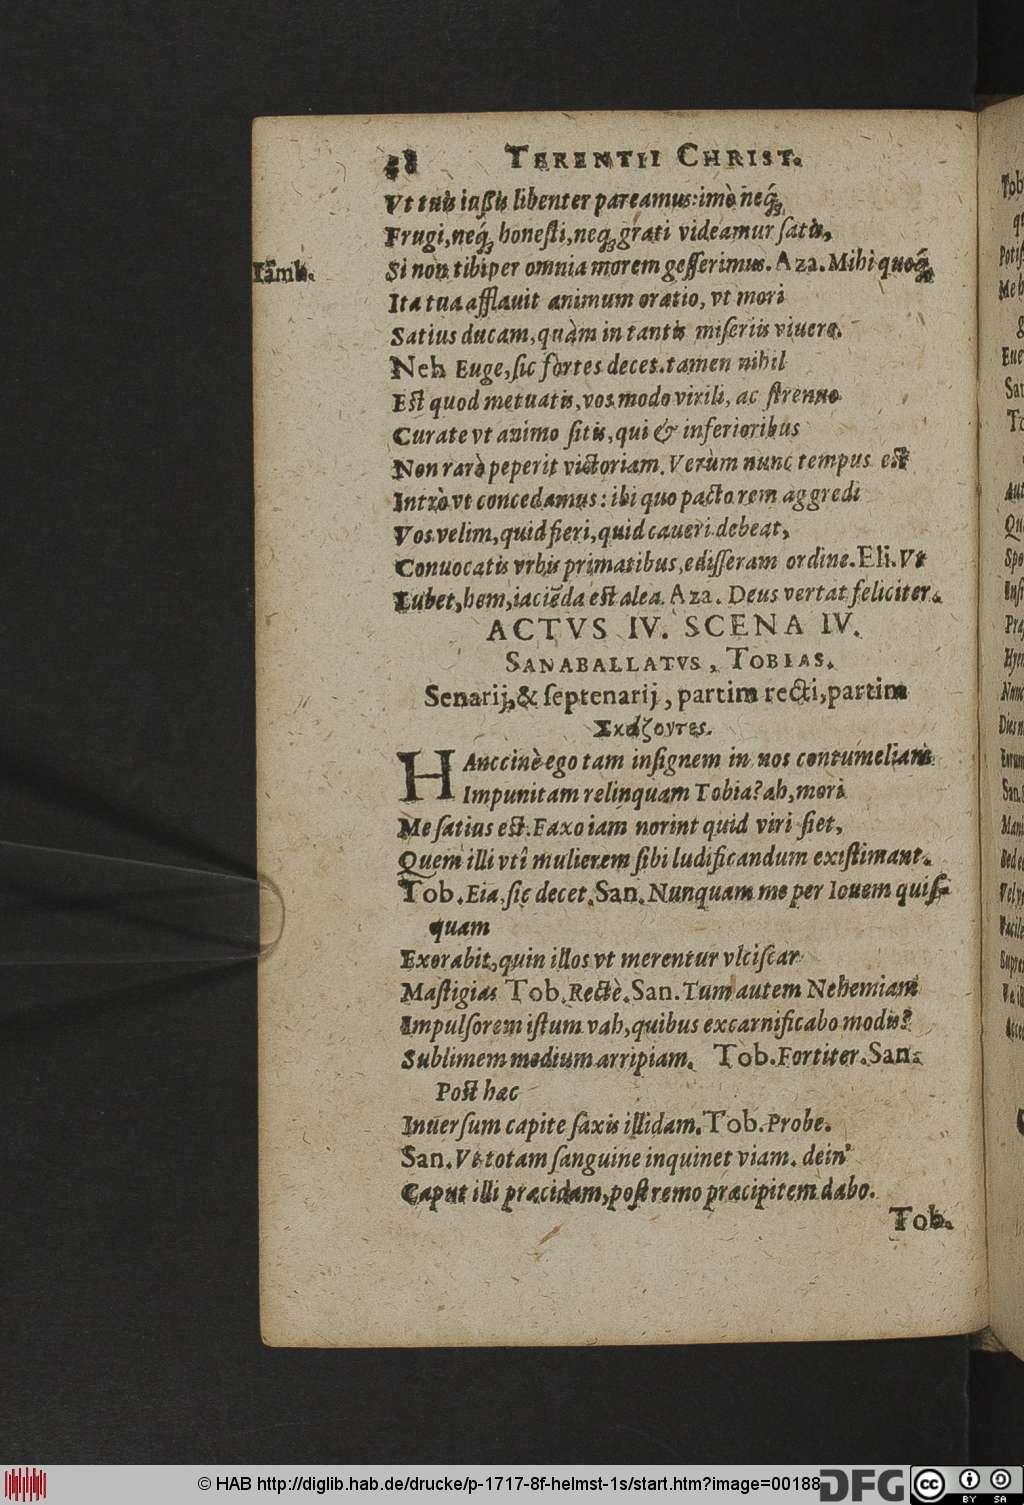 58 TERENTII CHRIST.
Vt tuis iußis libenter pareamus: imò neq́;
Frugi, neq́; honesti, neq; grati videamur satis,
Iamb. Si non tibi per omnia morem gesserimus. Aza. Mihi quoq́;
Ita tua afflauit animum oratio, vt mori
Satius ducam, quàm in tantis miseriis viuere.
Neh Euge, sic fortes decet. tamen nihil
Est quod metuatis, vos modo virili, ac strenuo
Curate vt animo sitis, qui & inferioribus
Non rarò peperit victoriam. Verùm nunc tempus est
Intrò vt concedamus: ibi quo pacto rem aggredi
Vos velim, quid fieri, quid caueri debeat,
Conuocatis vrbis primatibus, edisseram ordine. Eli. Vt
Lubet, hem, iaciēda est alea. Aza. Deus vertat feliciter.
ACTVS IV. SCENA IV.
SANABALLATVS, TOBIAS.
Senarij, & septenarij, partim recti, partim
Σκάζοντες.
HAnccinè ego tam insignem in nos contumeliam
Impunitam relinquam Tobia? ah, mori
Me satius est. Faxo iam norint quid viri siet,
Quem illi vtî mulierem sibi ludificandum existimant.
Tob. Eia, sic decet. San. Nunquam me per Iouem quis-
quam
Exorabit, quin illos vt merentur vlciscar
Mastigias Tob. Rectè. San. Tum autem Nehemiam
Impulsorem istum vah, quibus excarnificabo modis?
Sublimem medium arripiam. Tob. Fortiter. San.
Post hac
Inuersum capite saxis illidam. Tob. Probe.
San. Vt totam sanguine inquinet viam. dein'
Caput illi præcidam, postremo præcipitem dabo.
Tob.
© HAB http://diglib.hab.de/drucke/p-1717-8f-helmst-1s/start.htm?image=00188
DFG
cc BY SA